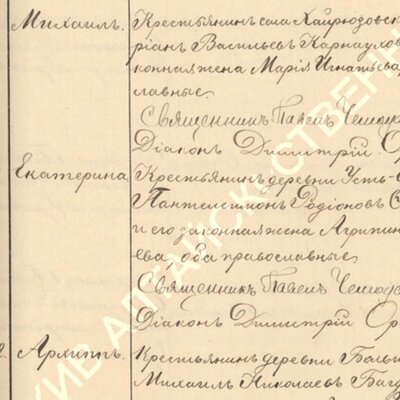 Михаилъ. Крестьянинъ села Хайрюзовск
ріанъ Васильевъ Карнаухов
конная жена Марія Игнатьева,
славные.
Священникъ Павелъ
Діаконъ Димитрій Ор
Екатерина Крестьянинъ деревни Усть-
Пантелеимонъ Родіоновъ С
и его законная жена Агрипин
ева, оба православные
Священникъ Павелъ
Діаконъ Димитрій Ор
2. Архиппъ. Крестьянинъ деревни
Михаилъ Николаевъ Багд